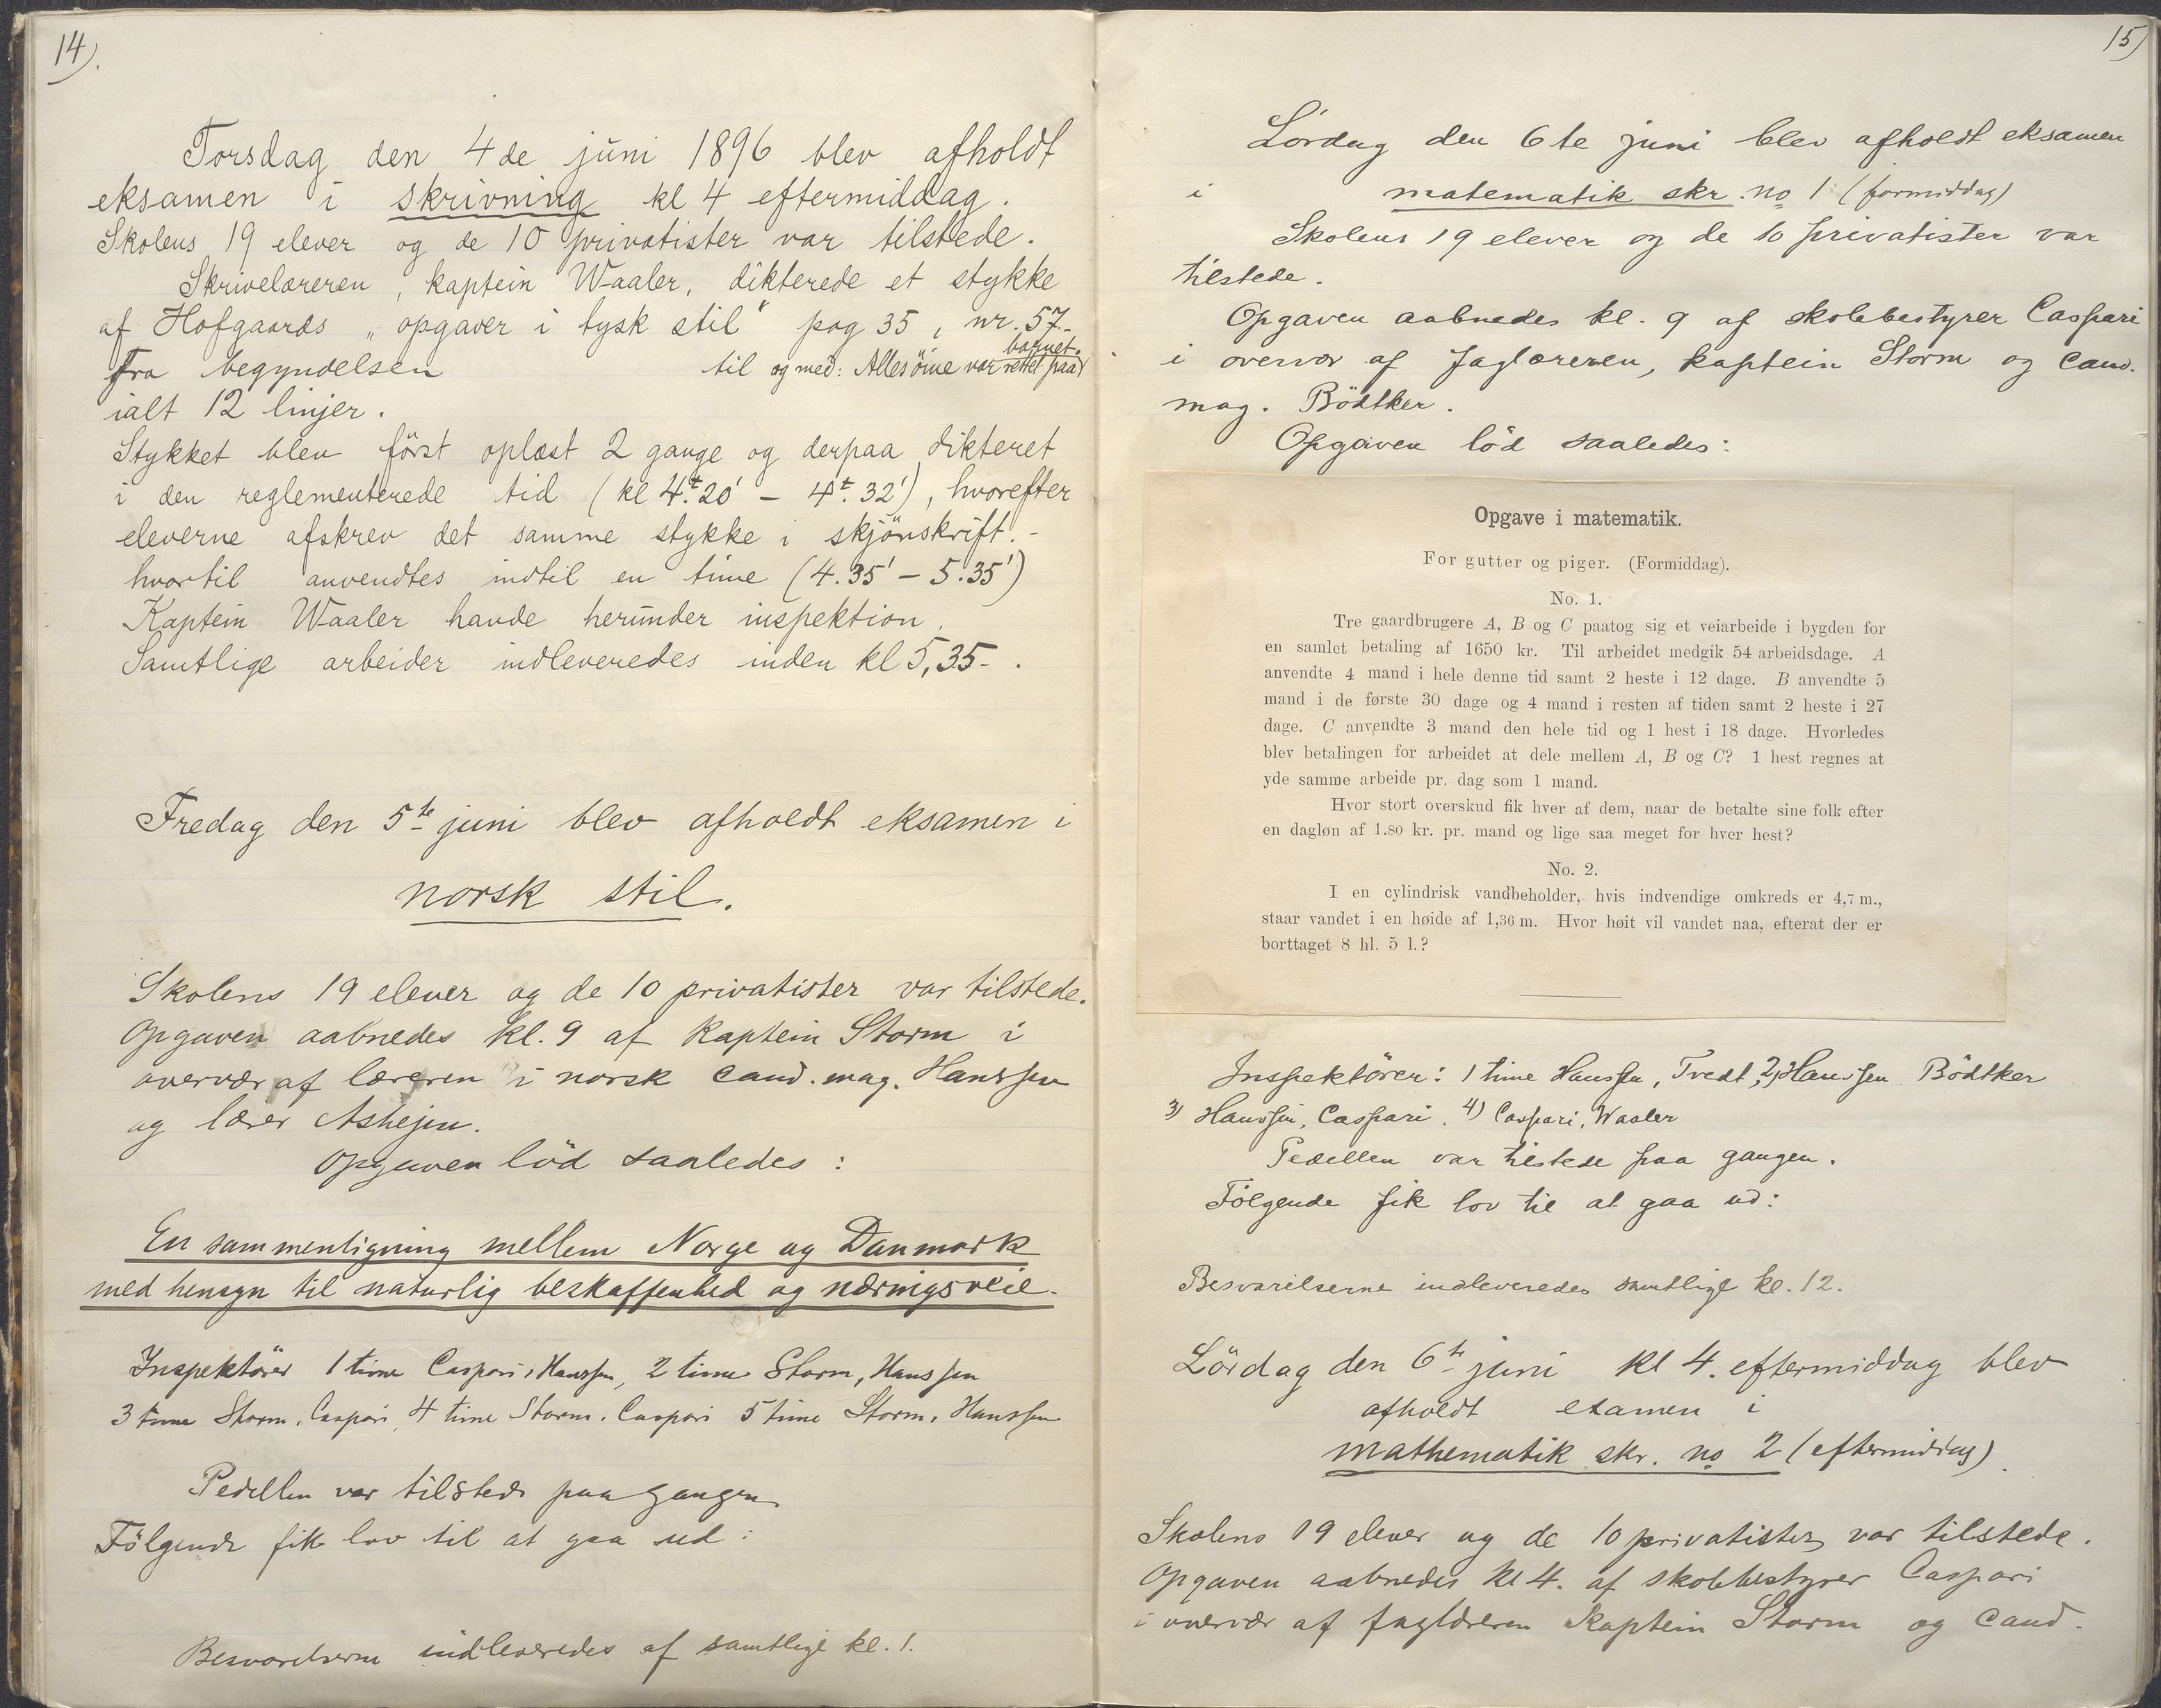 14).
Torsdag den 4de juni 1896 blev afholdt
eksamen i skrivning kl 4 eftermiddag.
Skolens 19 elever og de 10 privatister var tilstede.
Skrivelæreren, kaptein Waaler, dikterede et stykke
af Hofgaards „opgaver i tysk stil" pag 35, nr. 57.-
fra begyndelsen til og med: Alles öine var rettet paa barnet.
ialt 12 linjer.
Stykket blev först oplæst 2 gange og derpaa dikteret
i den reglementerede tid (kl 4t. 20' - 4t. 32'), hvorefter
eleverne afskrev det samme stykke i skjönskrift.-
hvortil anvendtes indtil en time (4.35' - 5.35')
Kaptein Waaler havde herunder inspektion.
Samtlige arbeider indleveredes inden kl 5,35-.
Fredag den 5te juni blev afholdt eksamen i
norsk stil.
Skolens 19 elever og de 10 privatister var tilstede.
Opgaven aabnedes kl. 9 af kaptein Storm i
overvær af læreren i norsk cand. mag. Hanssen
og lærer
Opgaven löd saaledes:
En sammenligning mellem Norge og Danmark
med hensyn til naturlig beskaffenhed og næringsveie.
Inspektörer 1 time Caspari, Hanssen, 2 time Storm, Hanssen
3 time Storm, Caspari, 4 time Storm, Caspari 5 time Storm, Hanssen
Pedellen var tilstede paa gangen.
Fölgende fik lov til at gaa ud:
Besvarelserne indleveredes af samtlige kl. 1.
15)
Lördag den 6te juni blev afholdt eksamen
i matematik skr. no 1 (formiddag)
Skolens 19 elever og de 10 privatister var
tilstede.
Opgaven aabnedes kl. 9 af skolebestyrer Caspari
i overvær af faglæreren, kaptein Storm og cand.
mag. Bödtker.
Opgaven löd saaledes:
Opgave i matematik.
For gutter og piger. (Formiddag).
No. 1.
Tre gaardbrugere A, B og C paatog sig et veiarbeide i bygden for
en samlet betaling af 1650 kr. Til arbeidet medgik 54 arbeidsdage. A
anvendte 4 mand i hele denne tid samt 2 heste i 12 dage. B anvendte 5
mand i de første 30 dage og 4 mand i resten af tiden samt 2 heste i 27
dage. C anvendte 3 mand den hele tid og 1 hest i 18 dage. Hvorledes
blev betalingen for arbeidet at dele mellem A, B og C? 1 hest regnes at
yde samme arbeide pr. dag som 1 mand.
Hvor stort overskud fik hver af dem, naar de betalte sine folk efter
en dagløn af 1.80 kr. pr. mand og lige saa meget for hver hest?
No. 2.
I en cylindrisk vandbeholder, hvis indvendige omkreds er 4,7 m.,
staar vandet i en høide af 1,36 m. Hvor høit vil vandet naa, efterat der er
borttaget 8 hl. 5 l.?
Inspektörer: 1 time Hanssen, Tvedt, 2) Hanssen Bödtker
3) Hanssen, Caspari. 4) Caspari, Waaler
Pedellen var tilstede paa gangen.
Fölgende fik lov til at gaa ud:
Besvarelserne indleveredes samtlige kl. 12.
Lördag den 6te juni kl 4. eftermiddag blev
afholdt examen i
mathematik skr. no 2 (eftermiddag)
Skolens 19 elever og de 10 privatister var tilstede.
Opgaven aabnedes kl 4. af skolebestyrer Caspari
i overvær af faglæreren Kaptein Storm og cand.